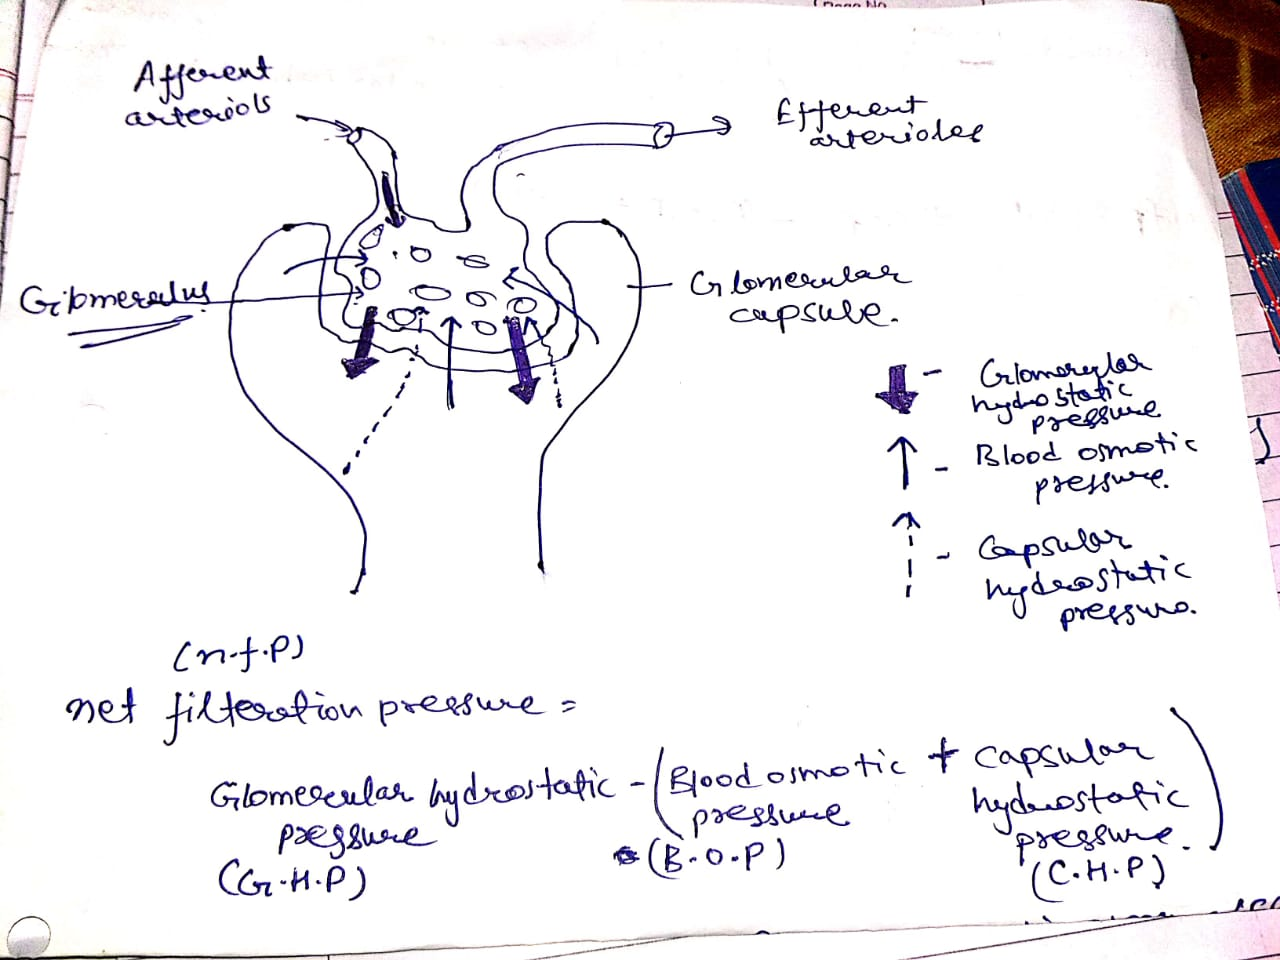 Afferent
arteriols
Efferent
arterioles
Glomerulus
Glomerular
capsule.
- Glomerular
hydrostatic
pressure
- Blood osmotic
pressure.
- Capsular
hydrostatic
pressure.
(n.f.P)
net filteration pressure =
Glomerular hydrostatic - (Blood osmotic + capsular
pressure pressure hydrostatic
pressure.)
(G.H.P) (B.O.P) (C.H.P)